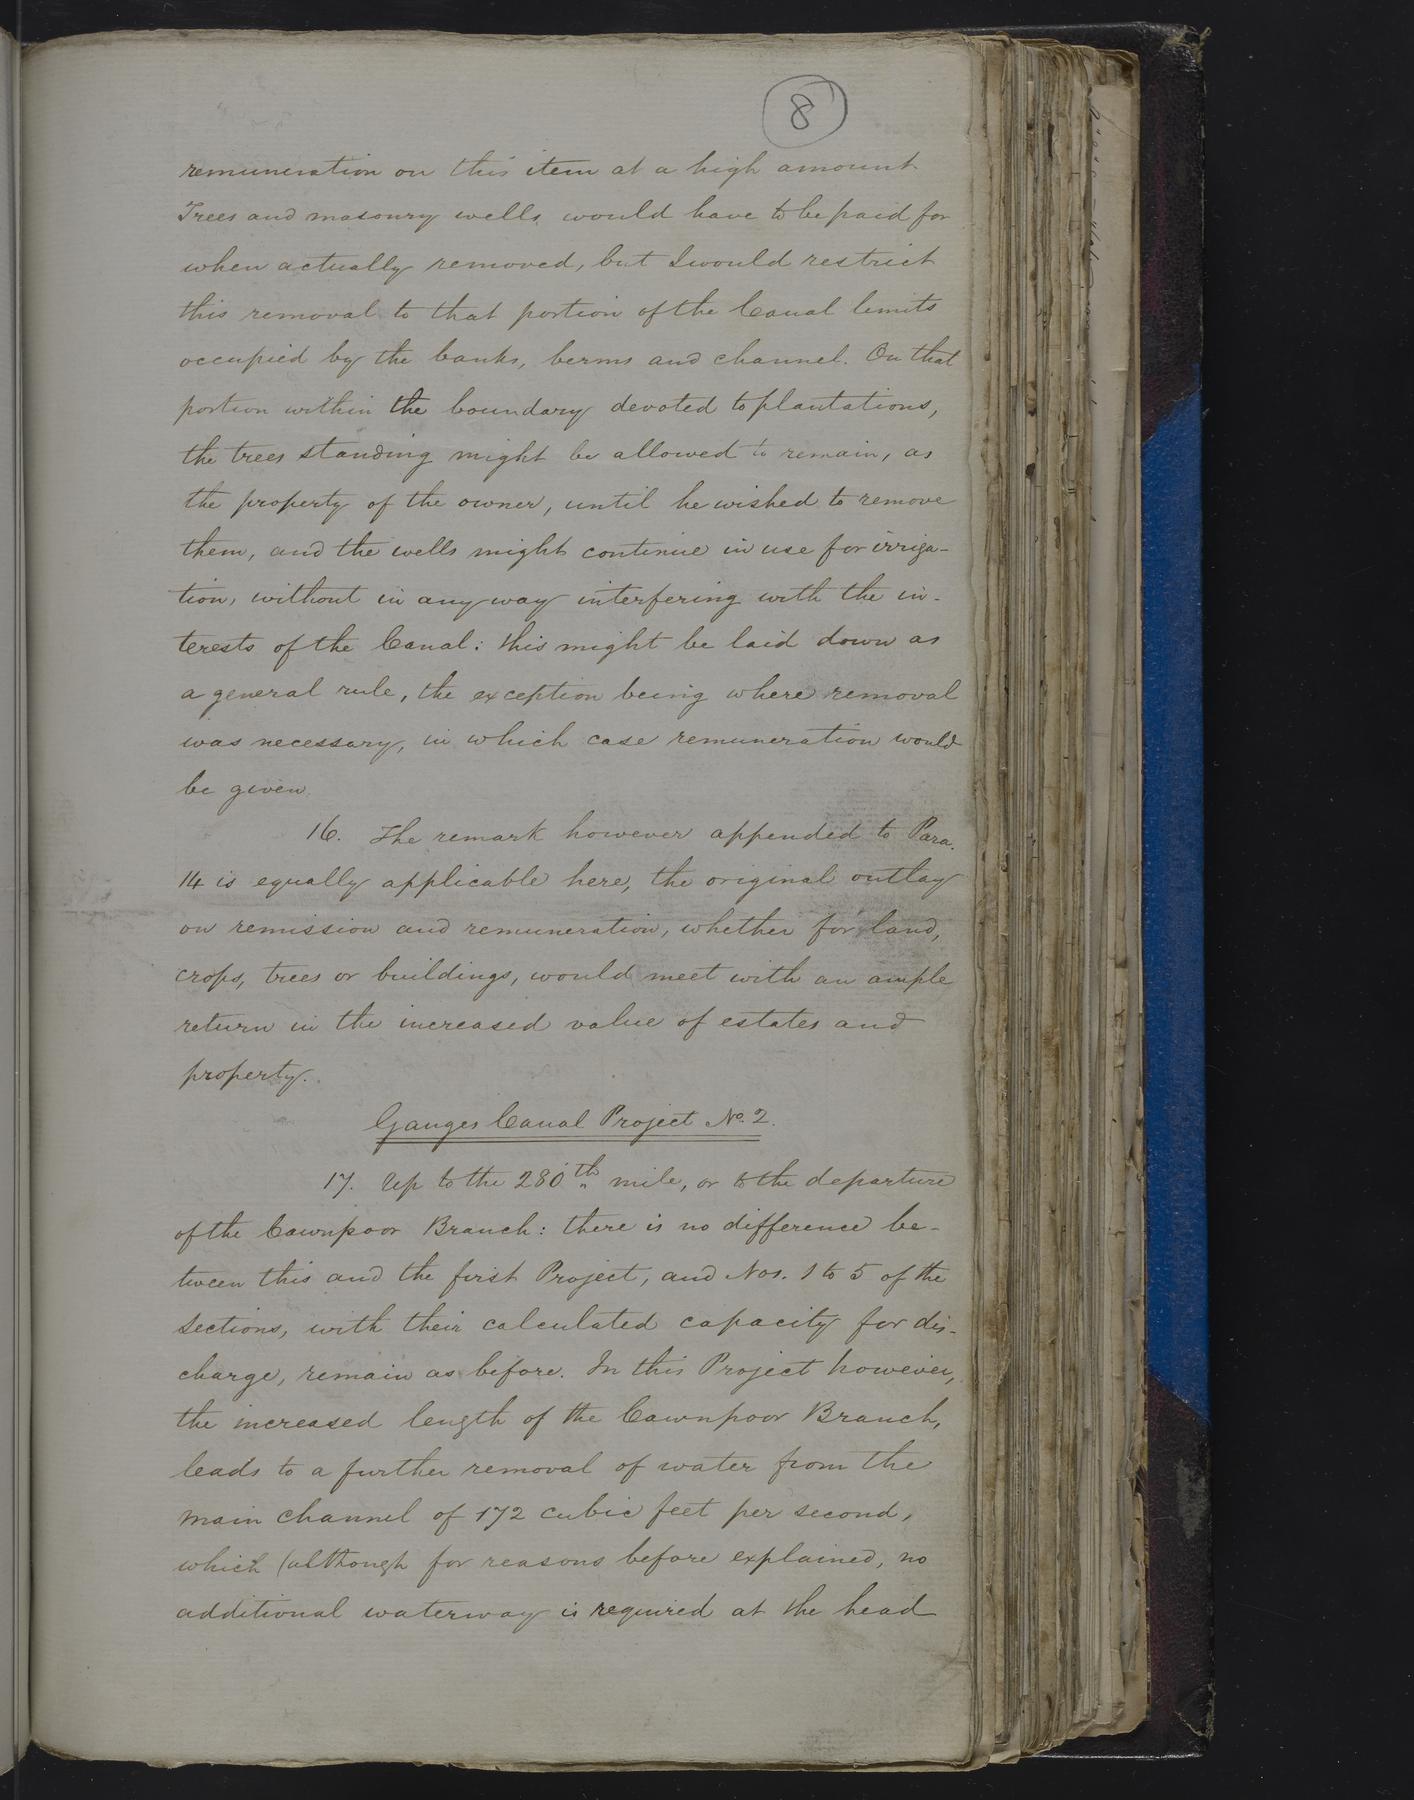 8
remuneration on this item at a high amount
Trees and masonry wells, would have to be paid for
when actually removed, but I would restrict
this removal to that portion of the Canal limits
occupied by the banks, berms and channel. On that
portion within the boundary devoted to plantations,
the trees standing might be allowed to remain, as
the property of the owner, until he wished to remove
them, and the wells might continue in use for irriga-
tion, without in any way interfering with the in-
terests of the Canal: this might be laid down as
a general rule, the exception being where removal
was necessary, in which case remuneration would
be given.
16. The remark however appended to Para.
14 is equally applicable here, the original outlay
on remission and remuneration, whether for land,
crops, trees or buildings, would meet with an ample
return in the increased value of estates and
property.
Ganges Canal Project No. 2.
17. Up to the 280th mile, or to the departure
of the Cawnpoor Branch: there is no difference be-
tween this and the first Project, and Nos. 1 to 5 of the
sections, with their calculated capacity for dis-
charge, remain as before. In this Project however,
the increased length of the Cawnpoor Branch,
leads to a further removal of water from the
main channel of 172 cubic feet per second,
which (although for reasons before explained, no
additional waterway is required at the head